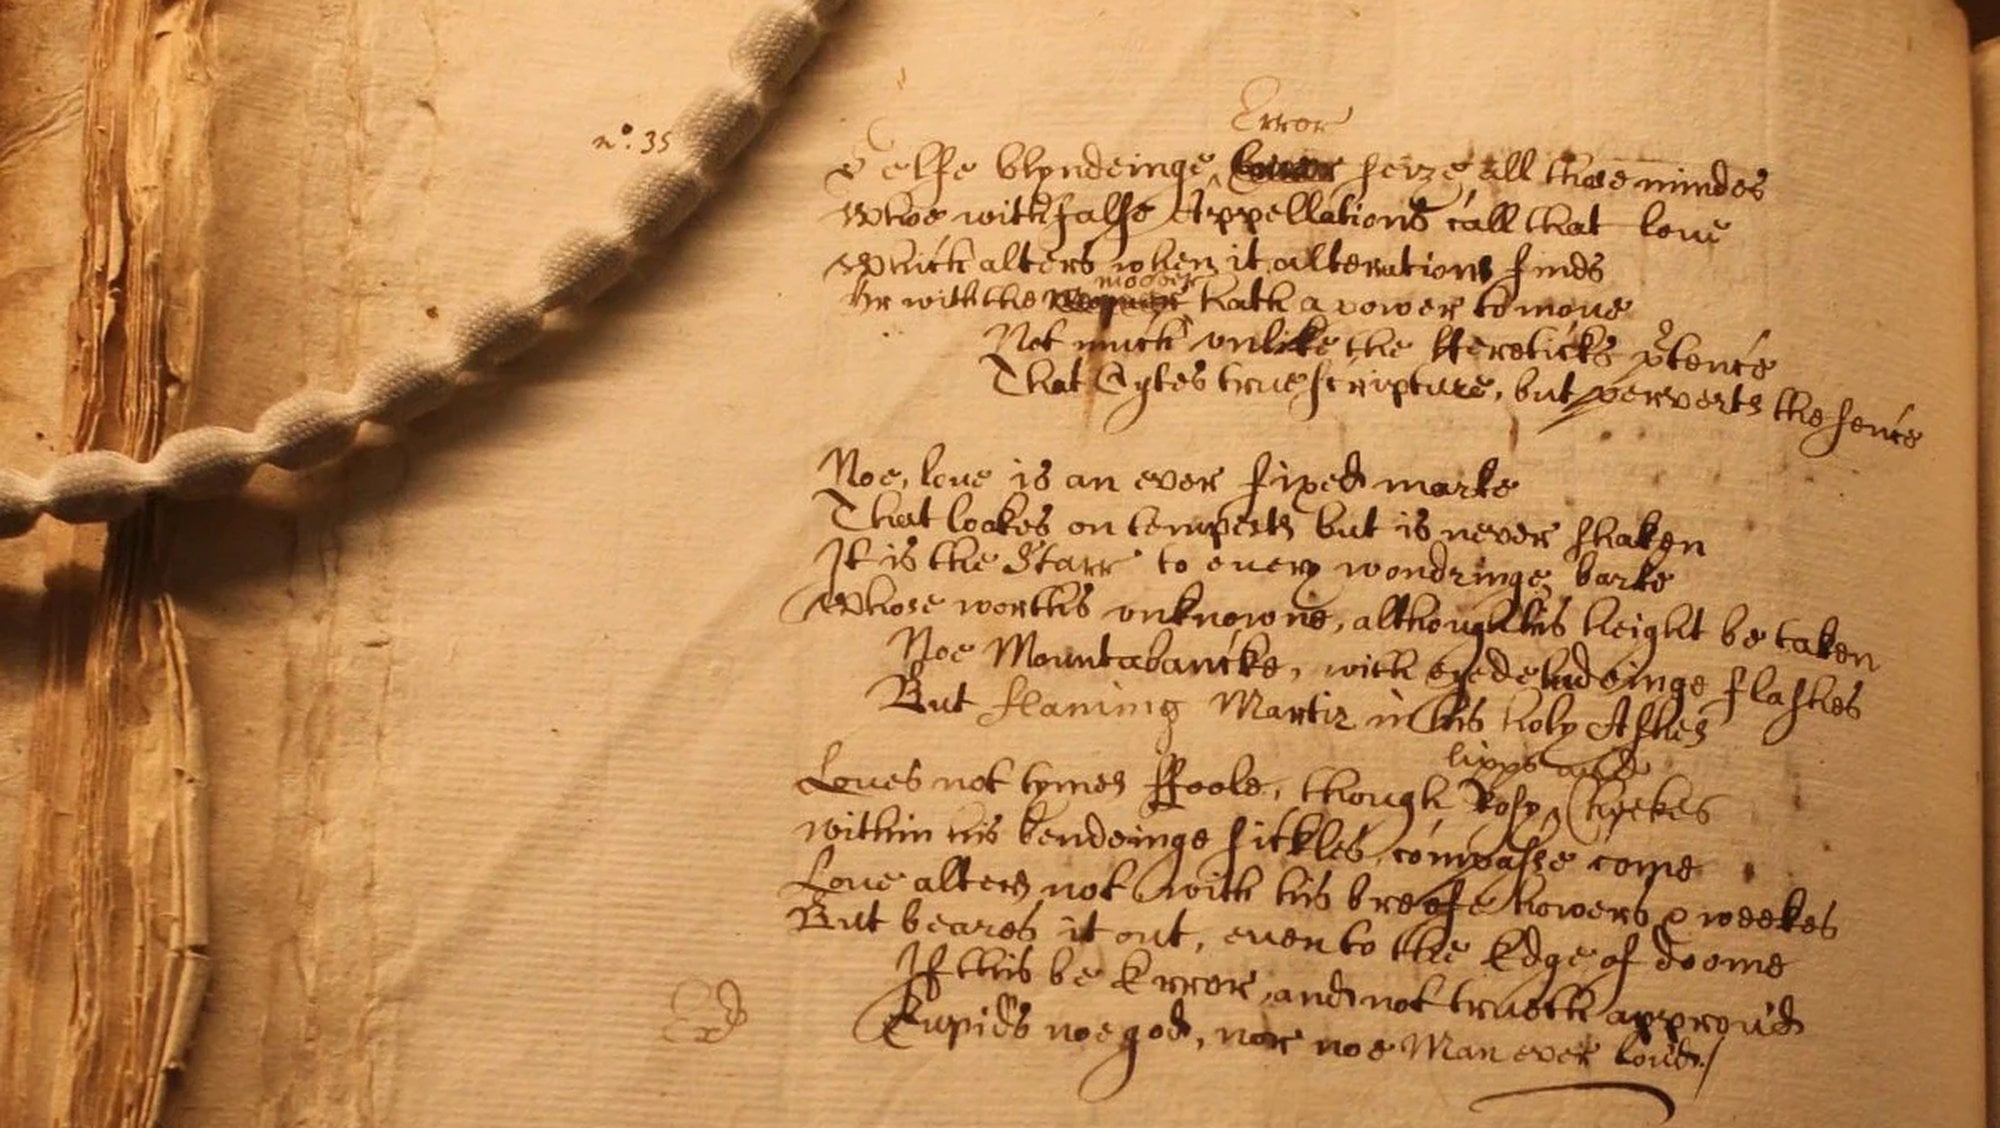 nº. 35
Error
Selfe blyndeinge seize all those mindes
Whoe with false Appellations call that loue
Which alters when it alterations finds
mover
Or with the hath a power to moue
Not much vnlike the Hereticks ꝑtence
That Cytes true scripture, but perverts the sence
Noe, loue is an ever fixed marke
That lookes on tempests but is never shaken
It is the Starr to euery wondringe barke
Whose worths vnknowne, although his height be taken
Noe Mountabancke, with eyedeludeinge flashes
But flaming Martir in his holy Ashes
lipps and
Loues not tymes ffoole, though Rosy Cheekes
within his bendeinge sickles compasse come
Loue alters not with his breefe howers & weekes
But beares it out, euen to the Edge of doome
If this be Error, and not trueth approu'd
Cupids noe god, nor noe Man ever lou'd./